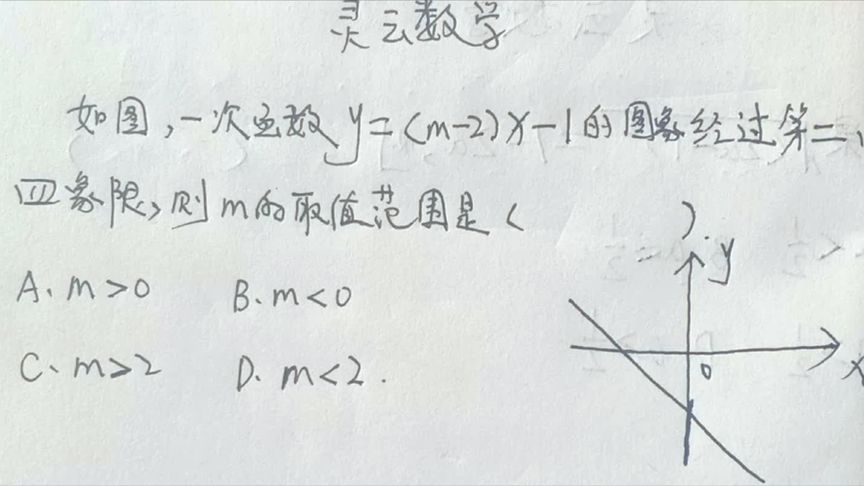 灵云数学
如图,一次函数y=(m-2)x-1的图象经过第二、
四象限,则m的取值范围是( ).
A、m>0 B、m<0
C、m>2 D、m<2.
y
0
x